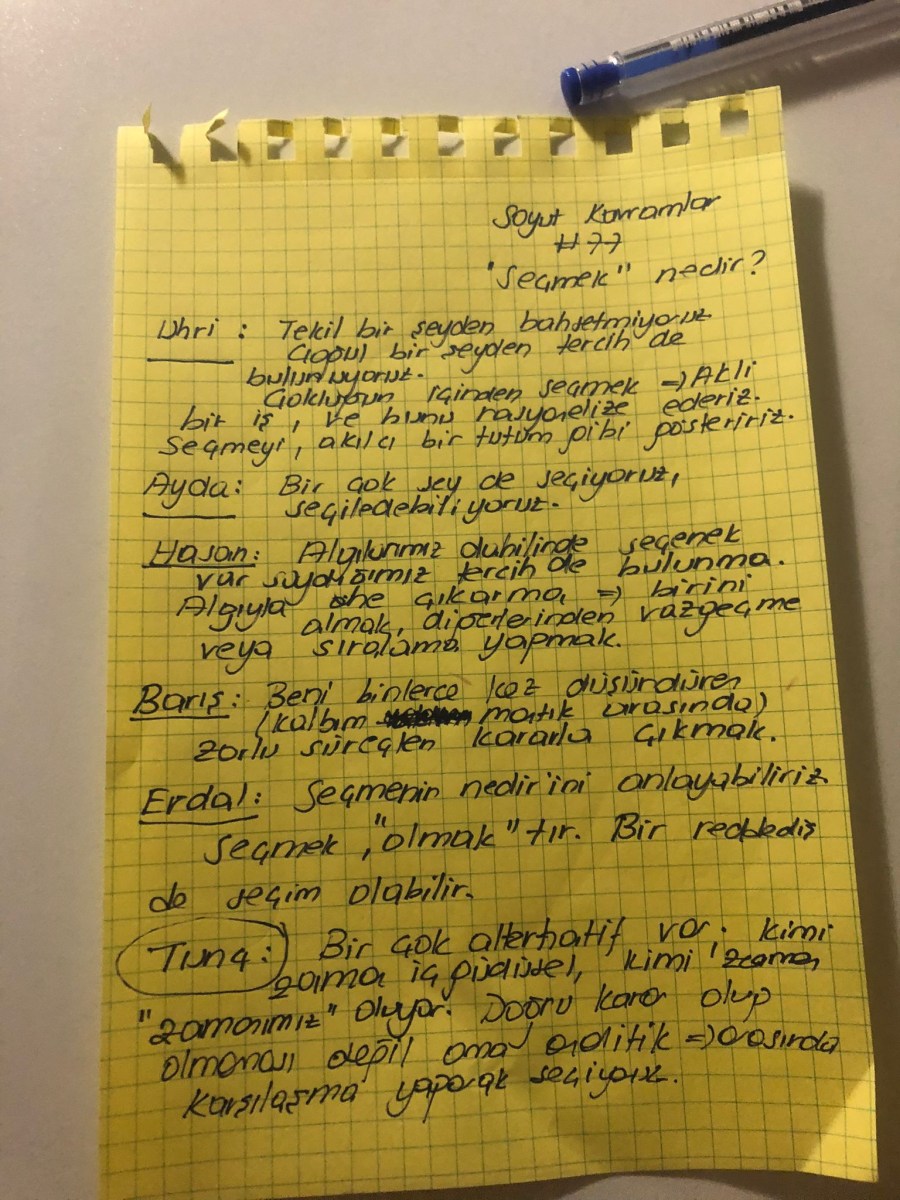 Soyut Kavramlar
#77
"Seçmek" nedir?
Uhri : Tekil bir şeyden bahsetmiyoruz
Çoğul bir şeyden tercih de
bulunuyoruz.
Çokluğun içinden seçmek => Akli
bir iş, ve bunu rasyonelize ederiz.
Seçmeyi, akılcı bir tutum gibi gösteririz.
Ayda: Bir çok şey de seçiyoruz,
seçiledebiliyoruz.
Hasan: Algılarımız dahilinde seçenek
var saydığımız tercih de bulunma.
Algıyla öne çıkarma => birini
almak, diğerlerinden vazgeçme
veya sıralama yapmak.
Barış: Beni binlerce kez düşündüren
(kalbim mantık arasında)
zorlu süreçten kararla çıkmak.
Erdal: Seçmenin nedir'ini anlayabiliriz
Seçmek, "olmak" tır. Bir reddediş
de seçim olabilir.
Tunç: Bir çok alternatif var. kimi
zaman içgüdüsel, kimi zaman
"zamanımız" oluyor. Doğru karar olup
olmaması değil ama analitik => arasında
karşılaşma yaparak seçiyoruz.